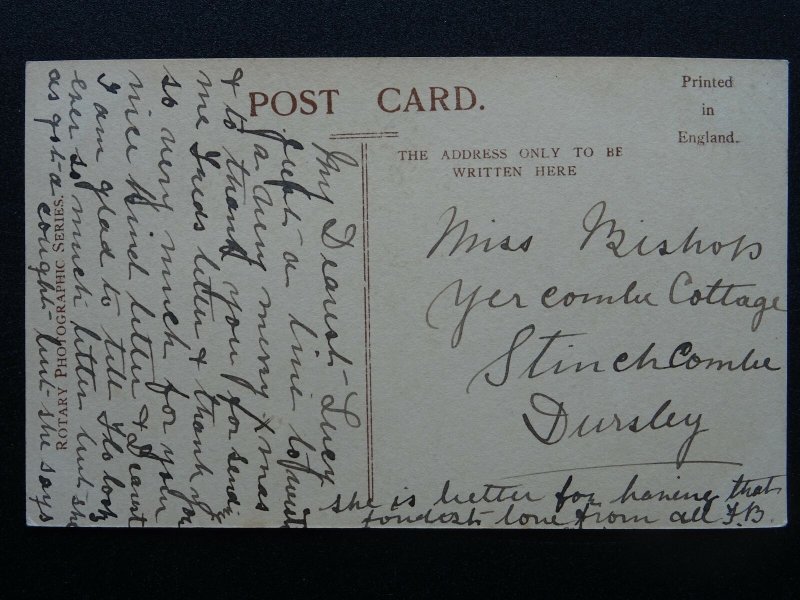 POST CARD.
Printed
in
England.
THE ADDRESS ONLY TO BE
WRITTEN HERE
ROTARY PHOTOGRAPHIC SERIES.
Miss Bishop
Yercombe Cottage
StinchCombe
Dursley
My Dearest Lucy
Just a line to wish
a very merry Xmas
& to thank you for sending
me letter & thank you
so very much for your
nice kind letter &
I am glad to tell look
ever so much better but she
as got a cough but she says
she is better for having that
fondest love from all F.B.